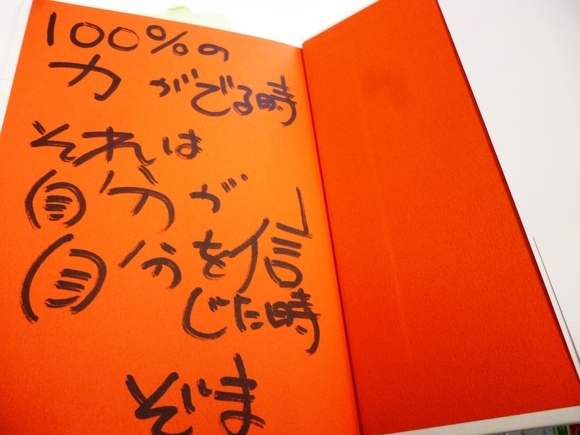 100%の
力がでる時
それは
自分が
自分を信
じた時
ぞじま